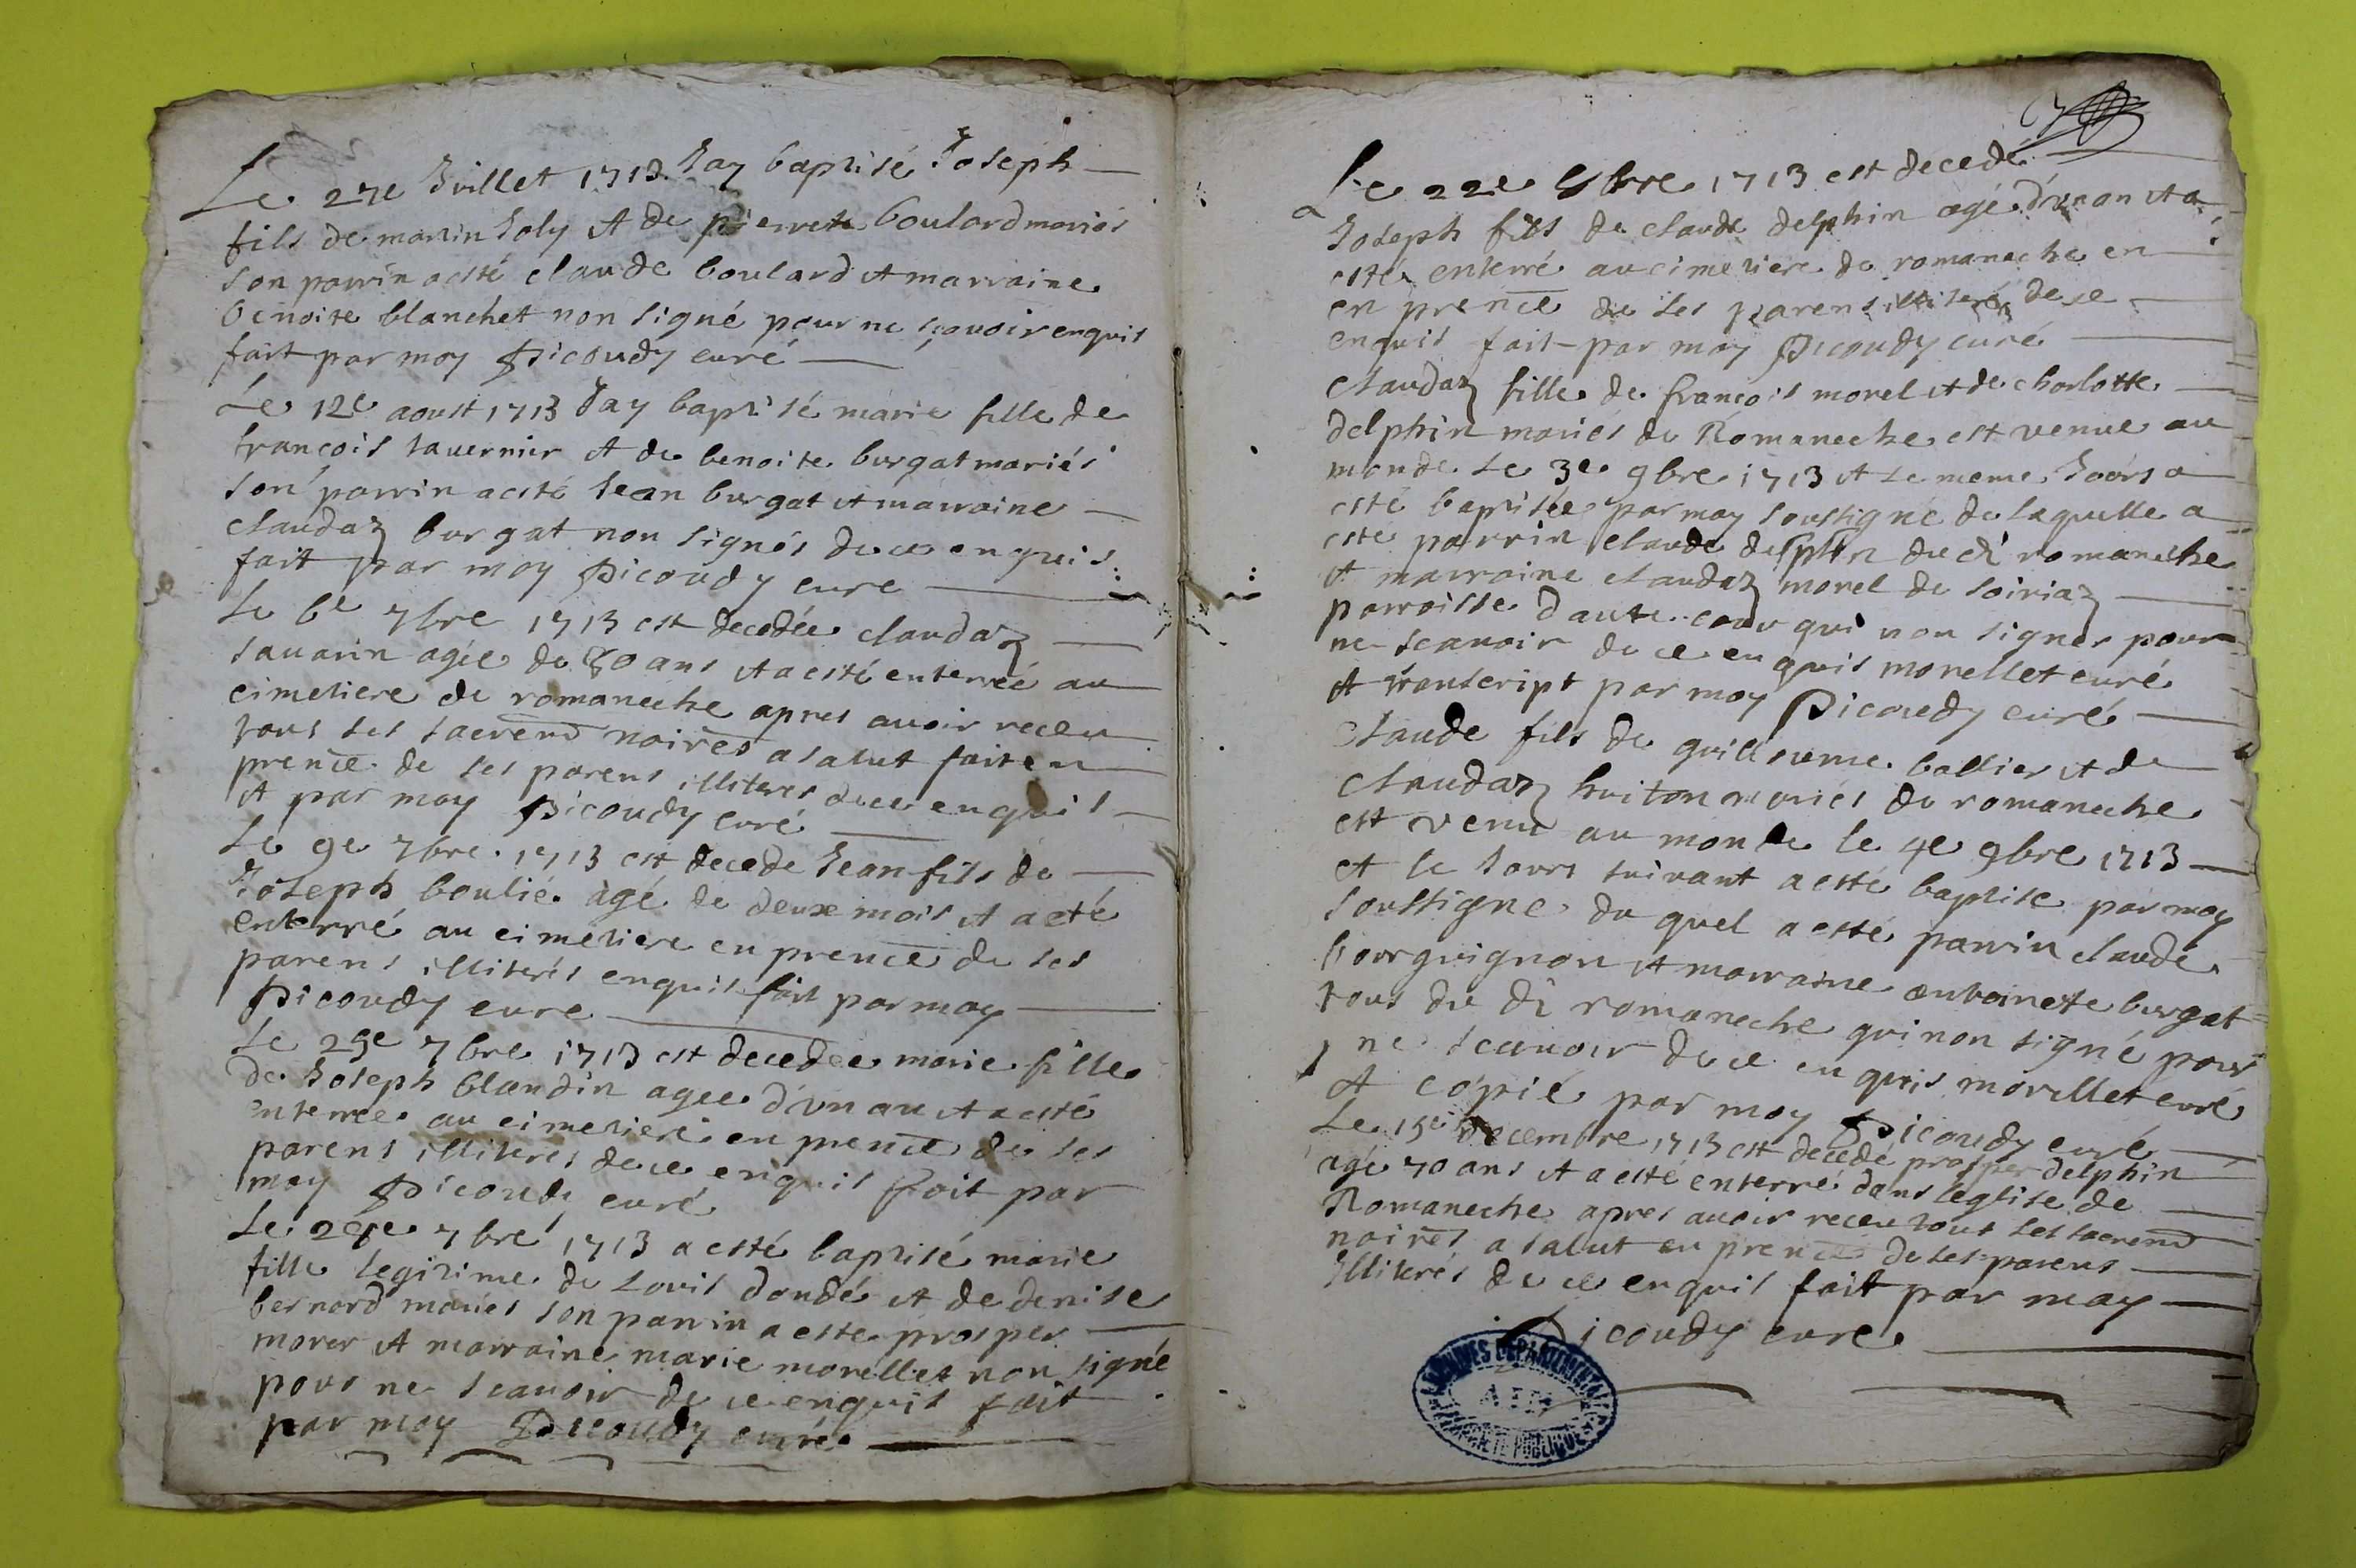 Le 27e Juillet 1713 Jay baptisé Joseph
fils de martin Joly et de pierrete boulard mariés
son parrin a esté claude boulard et marraine
benoite blanchet non signé pour ne sçavoir enquis
fait par moy Picoudy curé
Le 12e aoust 1713 Jay baptisé marie fille de
françois tavernier et de benoite burgat mariés
son parrin a esté Jean burgat et marraine
claudaz burgat non signés de ce enquis
fait par moy Picoudy cure
Le 6e 7bre 1713 est decedée claudaz
savarin agée de 80 ans et a esté enterrée au
cimetiere de romaneche apres avoir receu
tous ses sacremd noires a salut fait en
prence de ses parens illiteres de ce enquis
et par moy Picoudy curé
Le 9e 7bre 1713 est decede Jean fils de
Joseph boulié agé de deux mois et a eté
enterré au cimetiere en prence de ses
parens illiterés enquis fait par moy
Picoudy cure
Le 29e 7bre 1713 est decedee marie fille
de Joseph blandin agee d'un an et a esté
enterrée au cimetiere en prence de ses
parens illiterés de ce enquis fait par
moy Picoudy curé
Le 7bre 1713 a esté baptisé marie
fille legitime de Louis dondé et de denise
bernard mariés son parrin a este prosper
morer et marraine marie morellet non signé
pour ne scavoir de ce enquis fait
par moy Picoudy curé
Le 22e 8bre 1713 est decedé
Joseph fils de claude delphin agé d'un an et a
esté enterré au cimetiere de romaneche en
en prence de ses parens illiterés de ce
enquis fait par moy Picoudy curé
Claudaz fille de françois morel et de charlotte
delphin mariés de Romaneche est venue au
monde le 3e 9bre 1713 et le meme Jours a
esté baptisée par moy soussigné de laquelle a
esté parrin claude delphin du di romaneche
et marraine claudaz morel de soiriaz
parroisse d'autecour qui non signés pour
ne scavoir de ce enquis morellet curé
et transcript par moy Picoudy curé
Claude fils de guillieume ballier et de
claudaz huiton mariés de romaneche
est venu au monde le 4e 9bre 1713
et le Jours suivant a esté baptise par moy
soussigné du quel a esté parrin claude
bourguignon et marraine antoinette burgat
tous du di romaneche qui non signé pour
ne scavoir de ce enquis morellet curé
et copié par moy Picoudy curé
Le 15e decembre 1713 est decedé prosper delphin
agé 70 ans et a esté enterré dans leglise de
Romaneche apres avoir receu tous ses sacremd
noires a salut en prence de ses parens
Illiterés de ce enquis fait par moy
Picoudy cure
ARCHIVES DEPARTEMENTALES
AIN
PROPRIETE PUBLIQUE